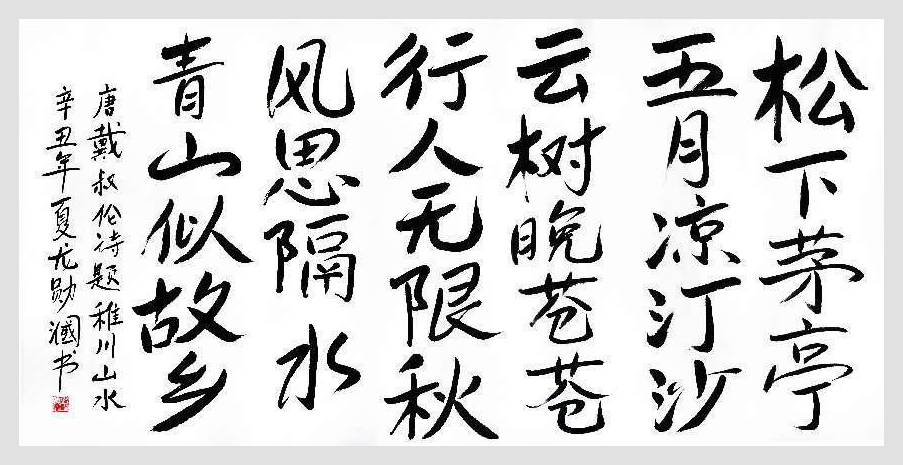 松下茅亭
五月凉汀沙
云树晚苍苍
行人无限秋
风思隔水
青山似故乡
唐戴叔伦诗题稚川山水
辛丑年夏龙勋书